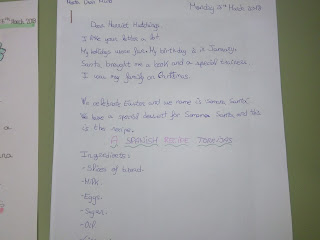 Monday 7th March 2013
Dear Harriet Hutchings,
I like your letter a lot.
My holidays were fun. My birthday is in January.
Santa brought me a book and a special
I saw my family on Christmas.
We celebrate Easter and we name is Semana Santa.
We have a special dessert for Semana Santa and this
is the recipe.
SPANISH RECIPE TORRIJAS
Ingredients:
- Slices of bread.
- Milk.
- Eggs.
- Sugar.
- Oil.